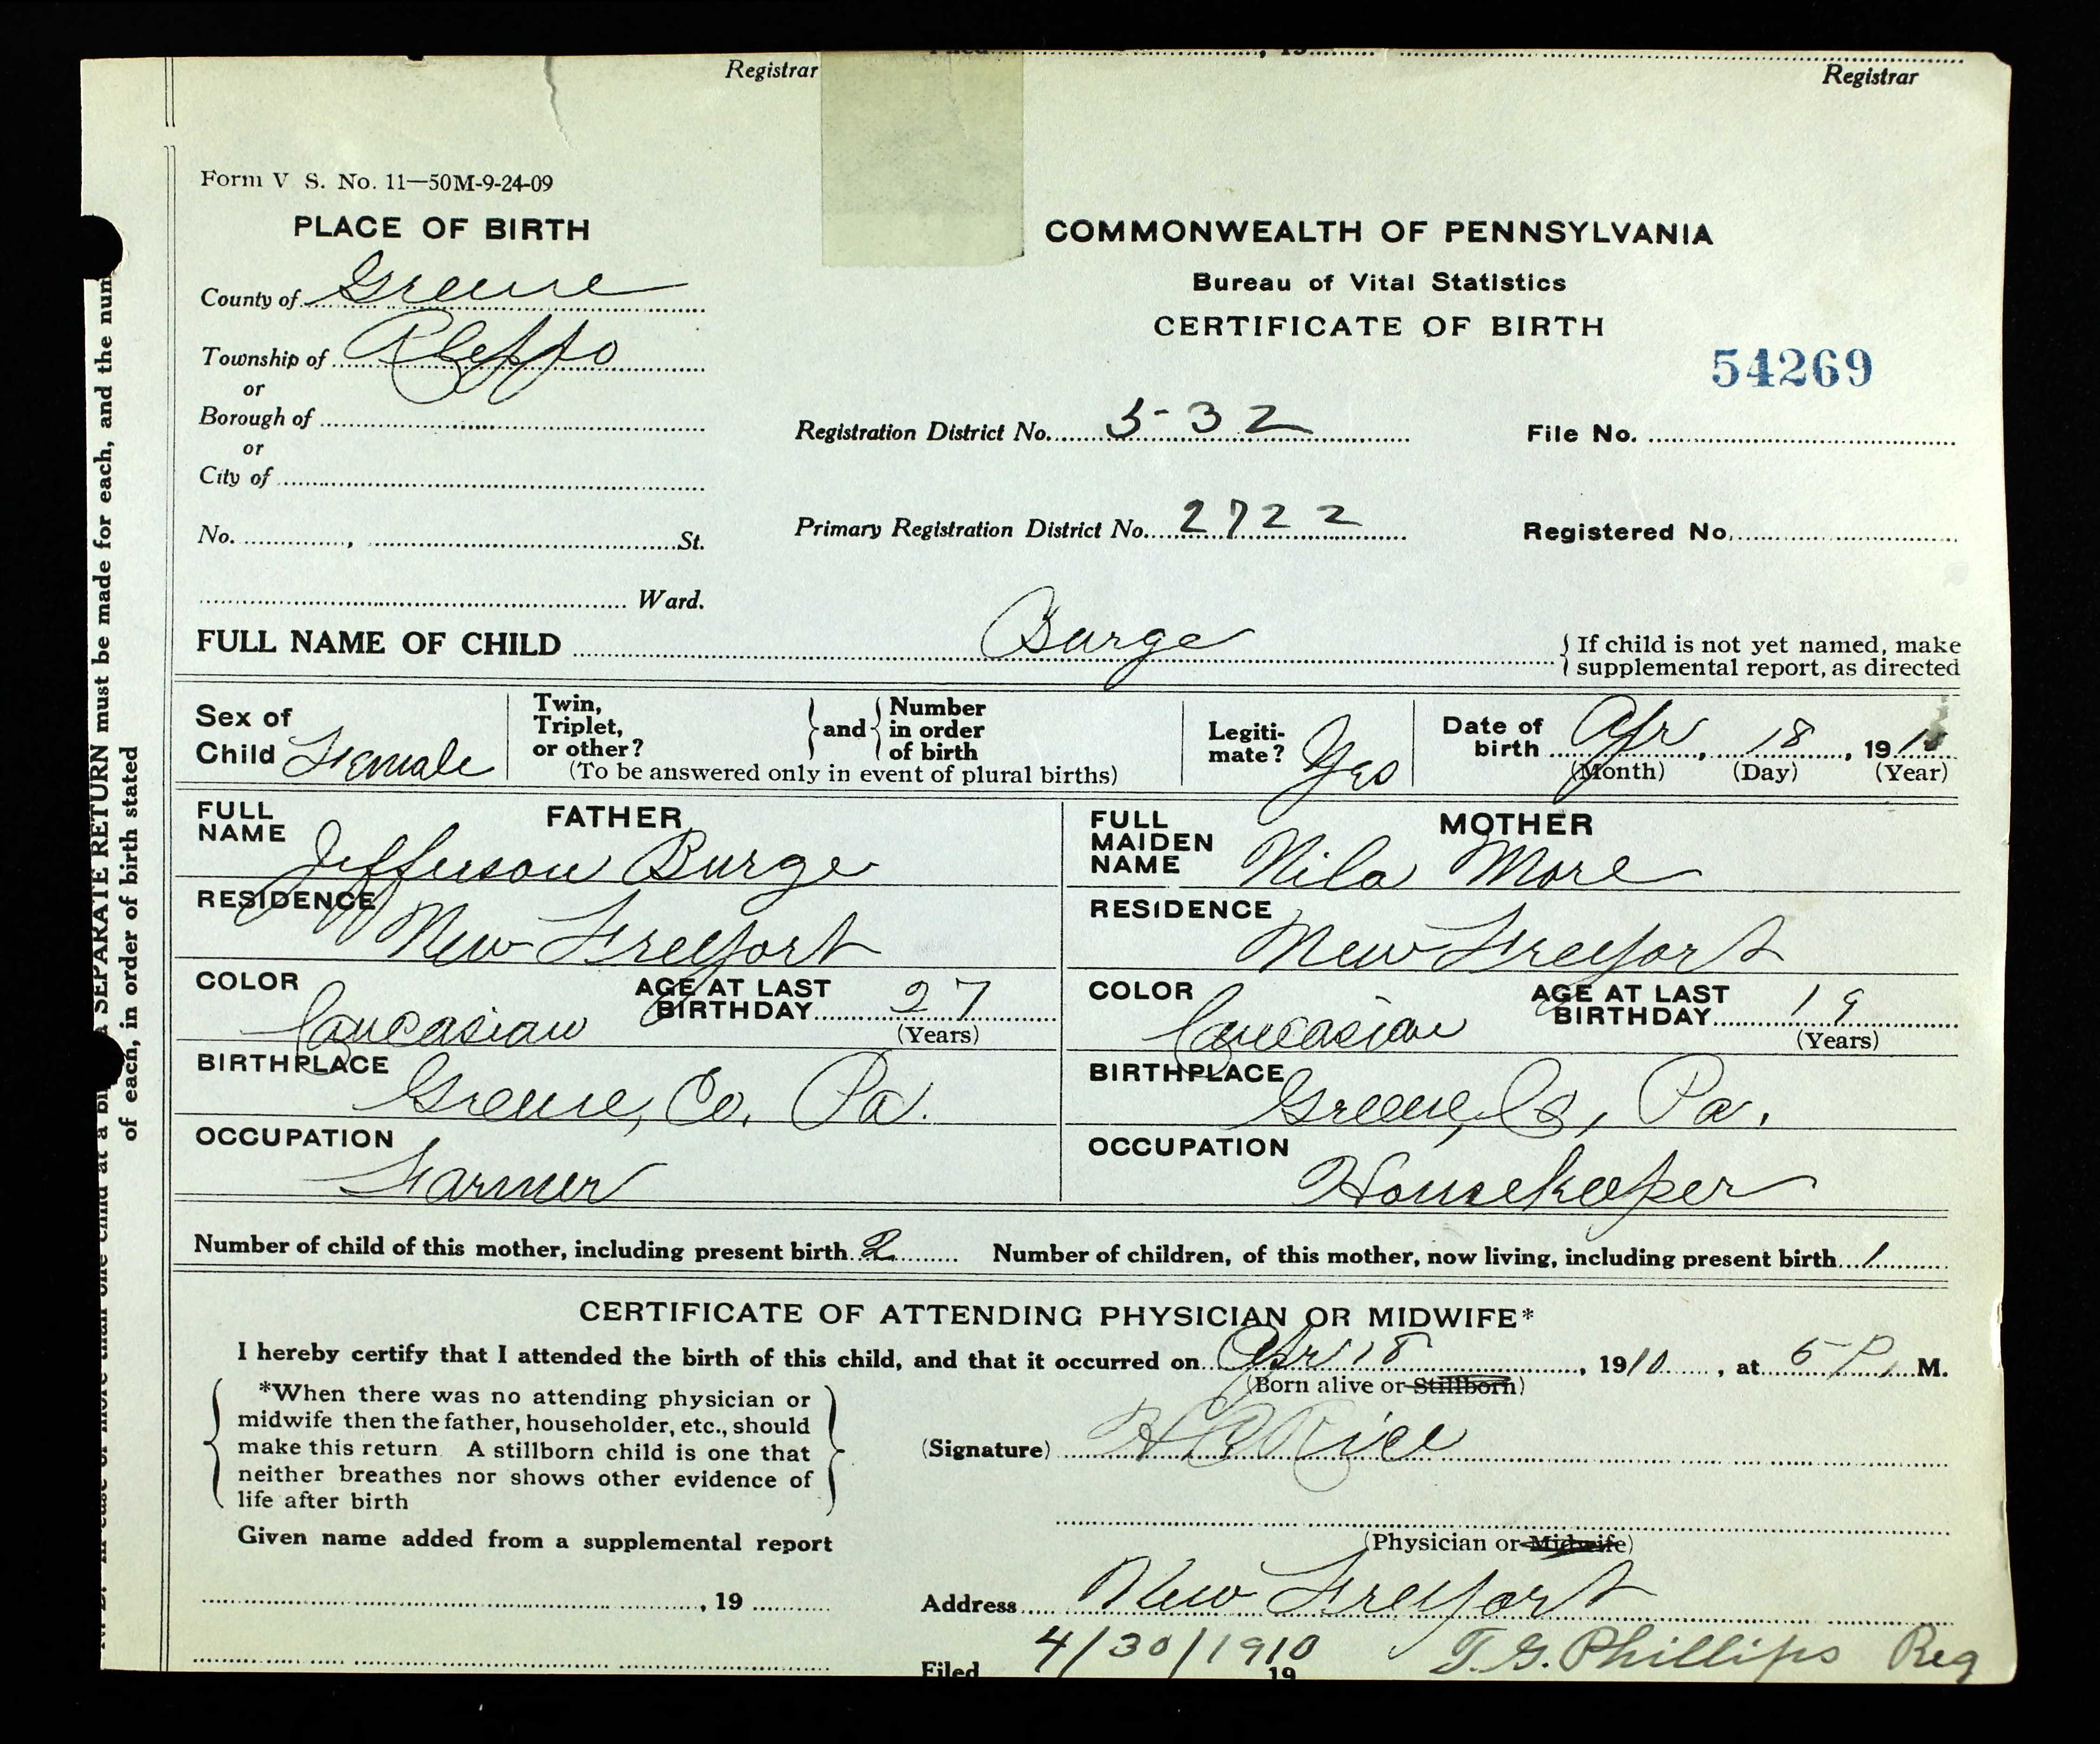 Registrar
Registrar
Form V S. No. 11—50M-9-24-09
PLACE OF BIRTH
County of Greene
Township of
or
Borough of
or
City of
No. , St.
Ward.
COMMONWEALTH OF PENNSYLVANIA
Bureau of Vital Statistics
CERTIFICATE OF BIRTH
54269
Registration District No. 532
File No.
Primary Registration District No. 2722
Registered No.
FULL NAME OF CHILD Burge
If child is not yet named, make
supplemental report, as directed
Sex of
Child Female
Twin,
Triplet,
or other?
and
Number
in order
of birth
(To be answered only in event of plural births)
Legiti-
mate? Yes
Date of
birth Apr, 18, 1910
(Month) (Day) (Year)
FATHER
FULL
NAME Jefferson Burge
RESIDENCE New Freeport
COLOR Caucasian
AGE AT LAST
BIRTHDAY 27
(Years)
BIRTHPLACE Greene, Co. Pa.
OCCUPATION Farmer
MOTHER
FULL
MAIDEN
NAME Nila More
RESIDENCE New Freeport
COLOR Caucasian
AGE AT LAST
BIRTHDAY 19
(Years)
BIRTHPLACE Greene, Co, Pa.
OCCUPATION Housekeeper
Number of child of this mother, including present birth 2 Number of children, of this mother, now living, including present birth 1
CERTIFICATE OF ATTENDING PHYSICIAN OR MIDWIFE*
I hereby certify that I attended the birth of this child, and that it occurred on Apr 18, 1910, at 5 P. M.
(Born alive or Stillborn)
*When there was no attending physician or
midwife then the father, householder, etc., should
make this return A stillborn child is one that
neither breathes nor shows other evidence of
life after birth
(Signature) Rice
(Physician or Midwife)
Given name added from a supplemental report
, 19
Address New Freeport
Filed 4/30/1910 19 T. G. Phillips Reg
SEPARATE RETURN must be made for each, and the num
of each, in order of birth stated